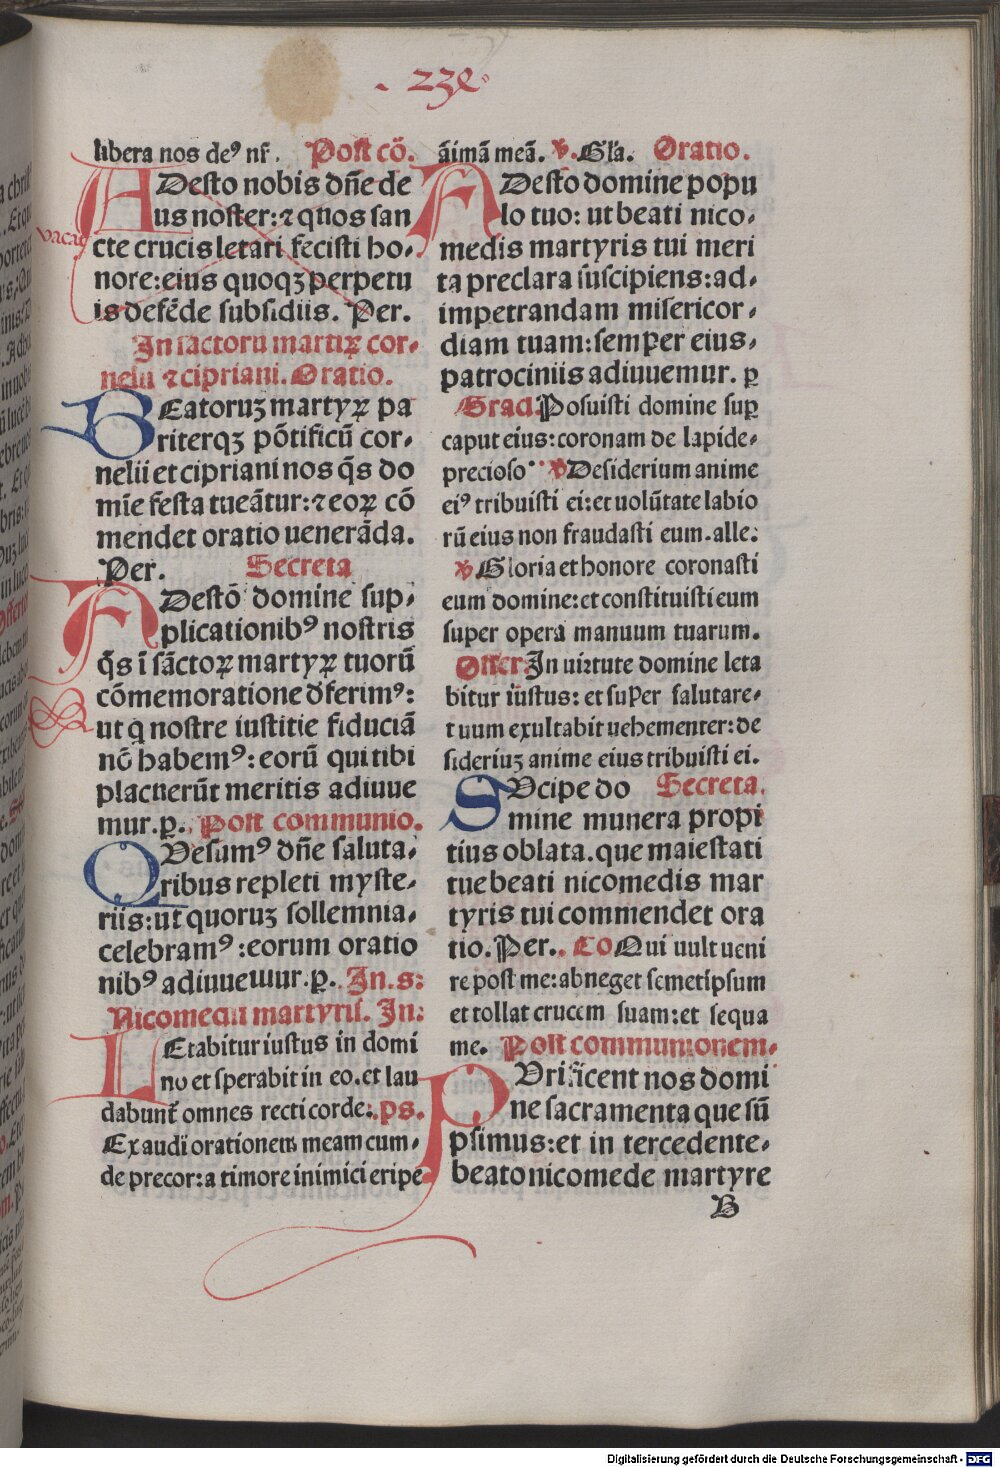 232
libera nos deꝰ nr̄. Post cō.
ADesto nobis dn̄e de
us noster: ⁊ quos san
vacat
cte crucis letari fecisti ho⸗
nore: eius quoqꝫ perpetu
is defēde subsidiis. Per.
In sāctorū martiꝝ cor⸗
nelii ⁊ cipriani. Oratio.
BEatoruꝫ martyꝝ pa
riterqꝫ pōtificū cor⸗
nelii et cipriani nos q̄s do
mīe festa tueātur: ⁊ eoꝝ cō
mendet oratio uenerāda.
Per. Secreta
ADestō domine sup⸗
plicationibꝰ nostris
q̄s ī sāctoꝝ martyꝝ tuorū
cōmemoratione dferimꝰ:
ut q̄ nostre iustitie fiduciā
nō habemꝰ: eorū qui tibi
placuerūt meritis adiuue
mur. ꝑ. Post communio.
QVesumꝰ dn̄e saluta⸗
ribus repleti myste⸗
riis: ut quoruꝫ sollemnia⸗
celebramꝰ: eorum oratio
nibꝰ adiuuemur. ꝑ. In. s:
Nicomedii martyris. In:
LEtabitur iustus in domi
no et sperabit in eo. et lau
dabunt̄ omnes recti corde:. ps.
Exaudi orationem meam cum⸗
de precor: a timore inimici eripe
āimā meā. ℣. Gla. Oratio.
ADesto domine popu
lo tuo: ut beati nico⸗
medis martyris tui meri
ta preclara suscipiens: ad⸗
impetrandam misericor⸗
diam tuam: semper eius⸗
patrociniis adiuuemur. ꝑ
Grad. Posuisti domine suꝑ
caput eius: coronam de lapide⸗
precioso ℣ Desiderium anime
eiꝰ tribuisti ei: et uolūtate labio
rū eius non fraudasti eum. alle:
℣ Gloria et honore coronasti
eum domine: et constituisti eum
super opera manuum tuarum.
Offer. In uirtute domine leta
bitur iustus: et super salutare⸗
tuum exultabit uehementer: de
sideriuꝫ anime eius tribuisti ei.
SVcipe do Secreta.
mine munera propi
tius oblata. que maiestati
tue beati nicomedis mar
tyris tui commendet ora
tio. Per. CO Qui uult ueni
re post me: abneget semetipsum
et tollat crucem suam: et sequa
me. Post communionem.
PVrificent nos domi
ne sacramenta que sū
psimus: et in tercedente⸗
beato nicomede martyre
B
Digitalisierung gefördert durch die Deutsche Forschungsgemeinschaft - DFG